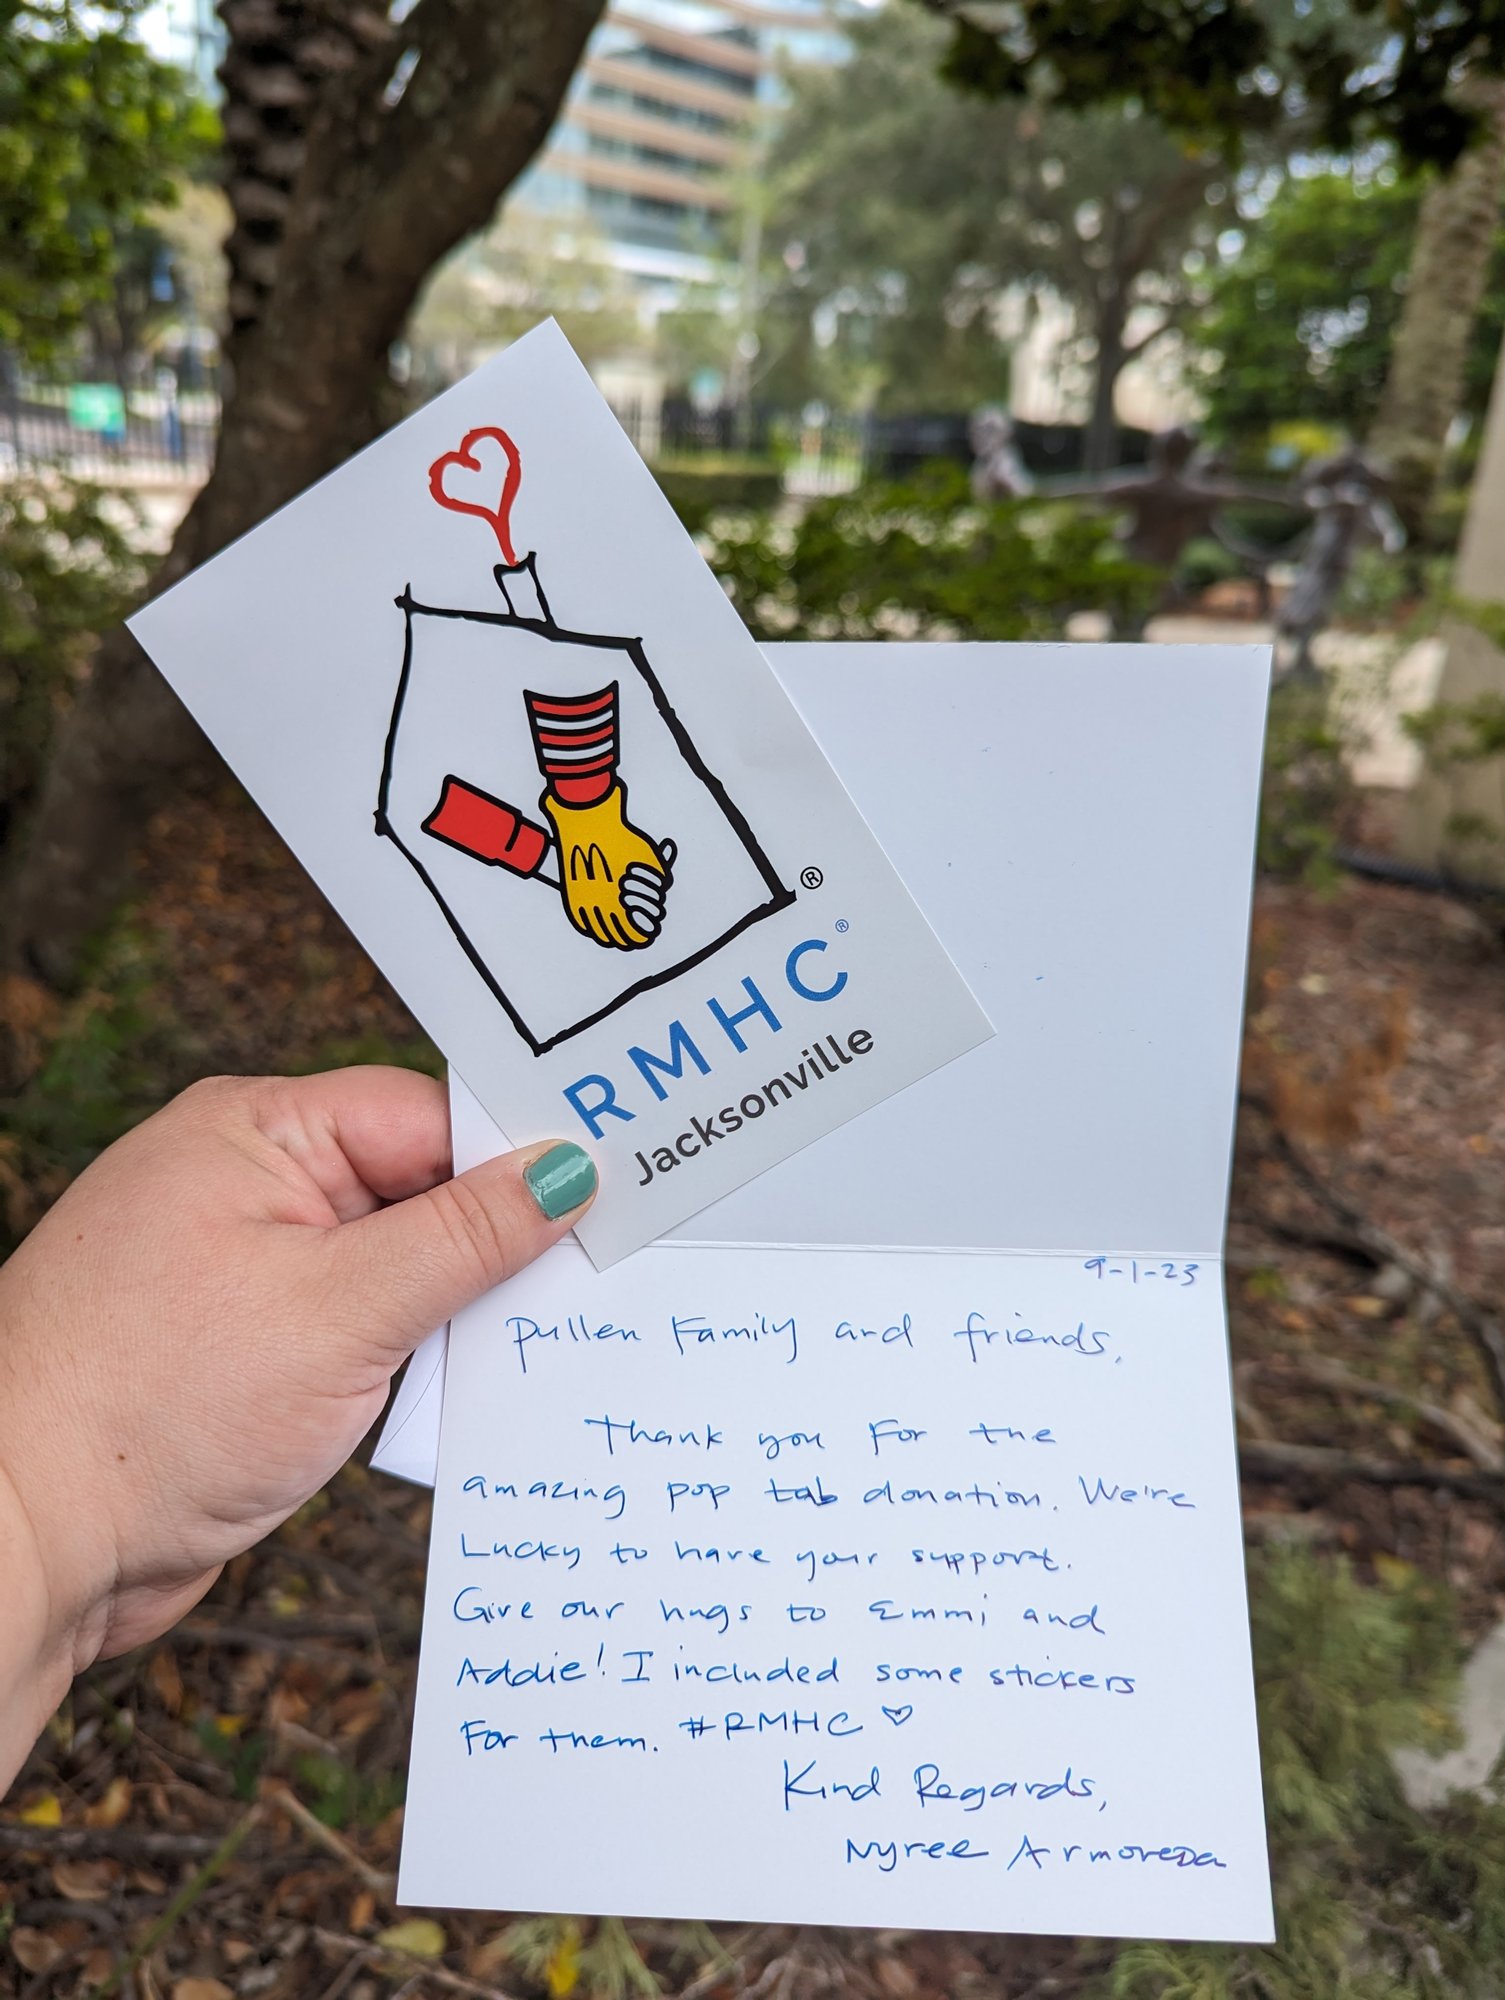 ®
RMHC®
Jacksonville
9-1-23
Pullen Family and friends,
Thank you for the
amazing pop tab donation. We're
Lucky to have your support.
Give our hugs to Emmi and
Addie! I included some stickers
For them. #RMHC ♡
Kind Regards,
Nyree Armoreda